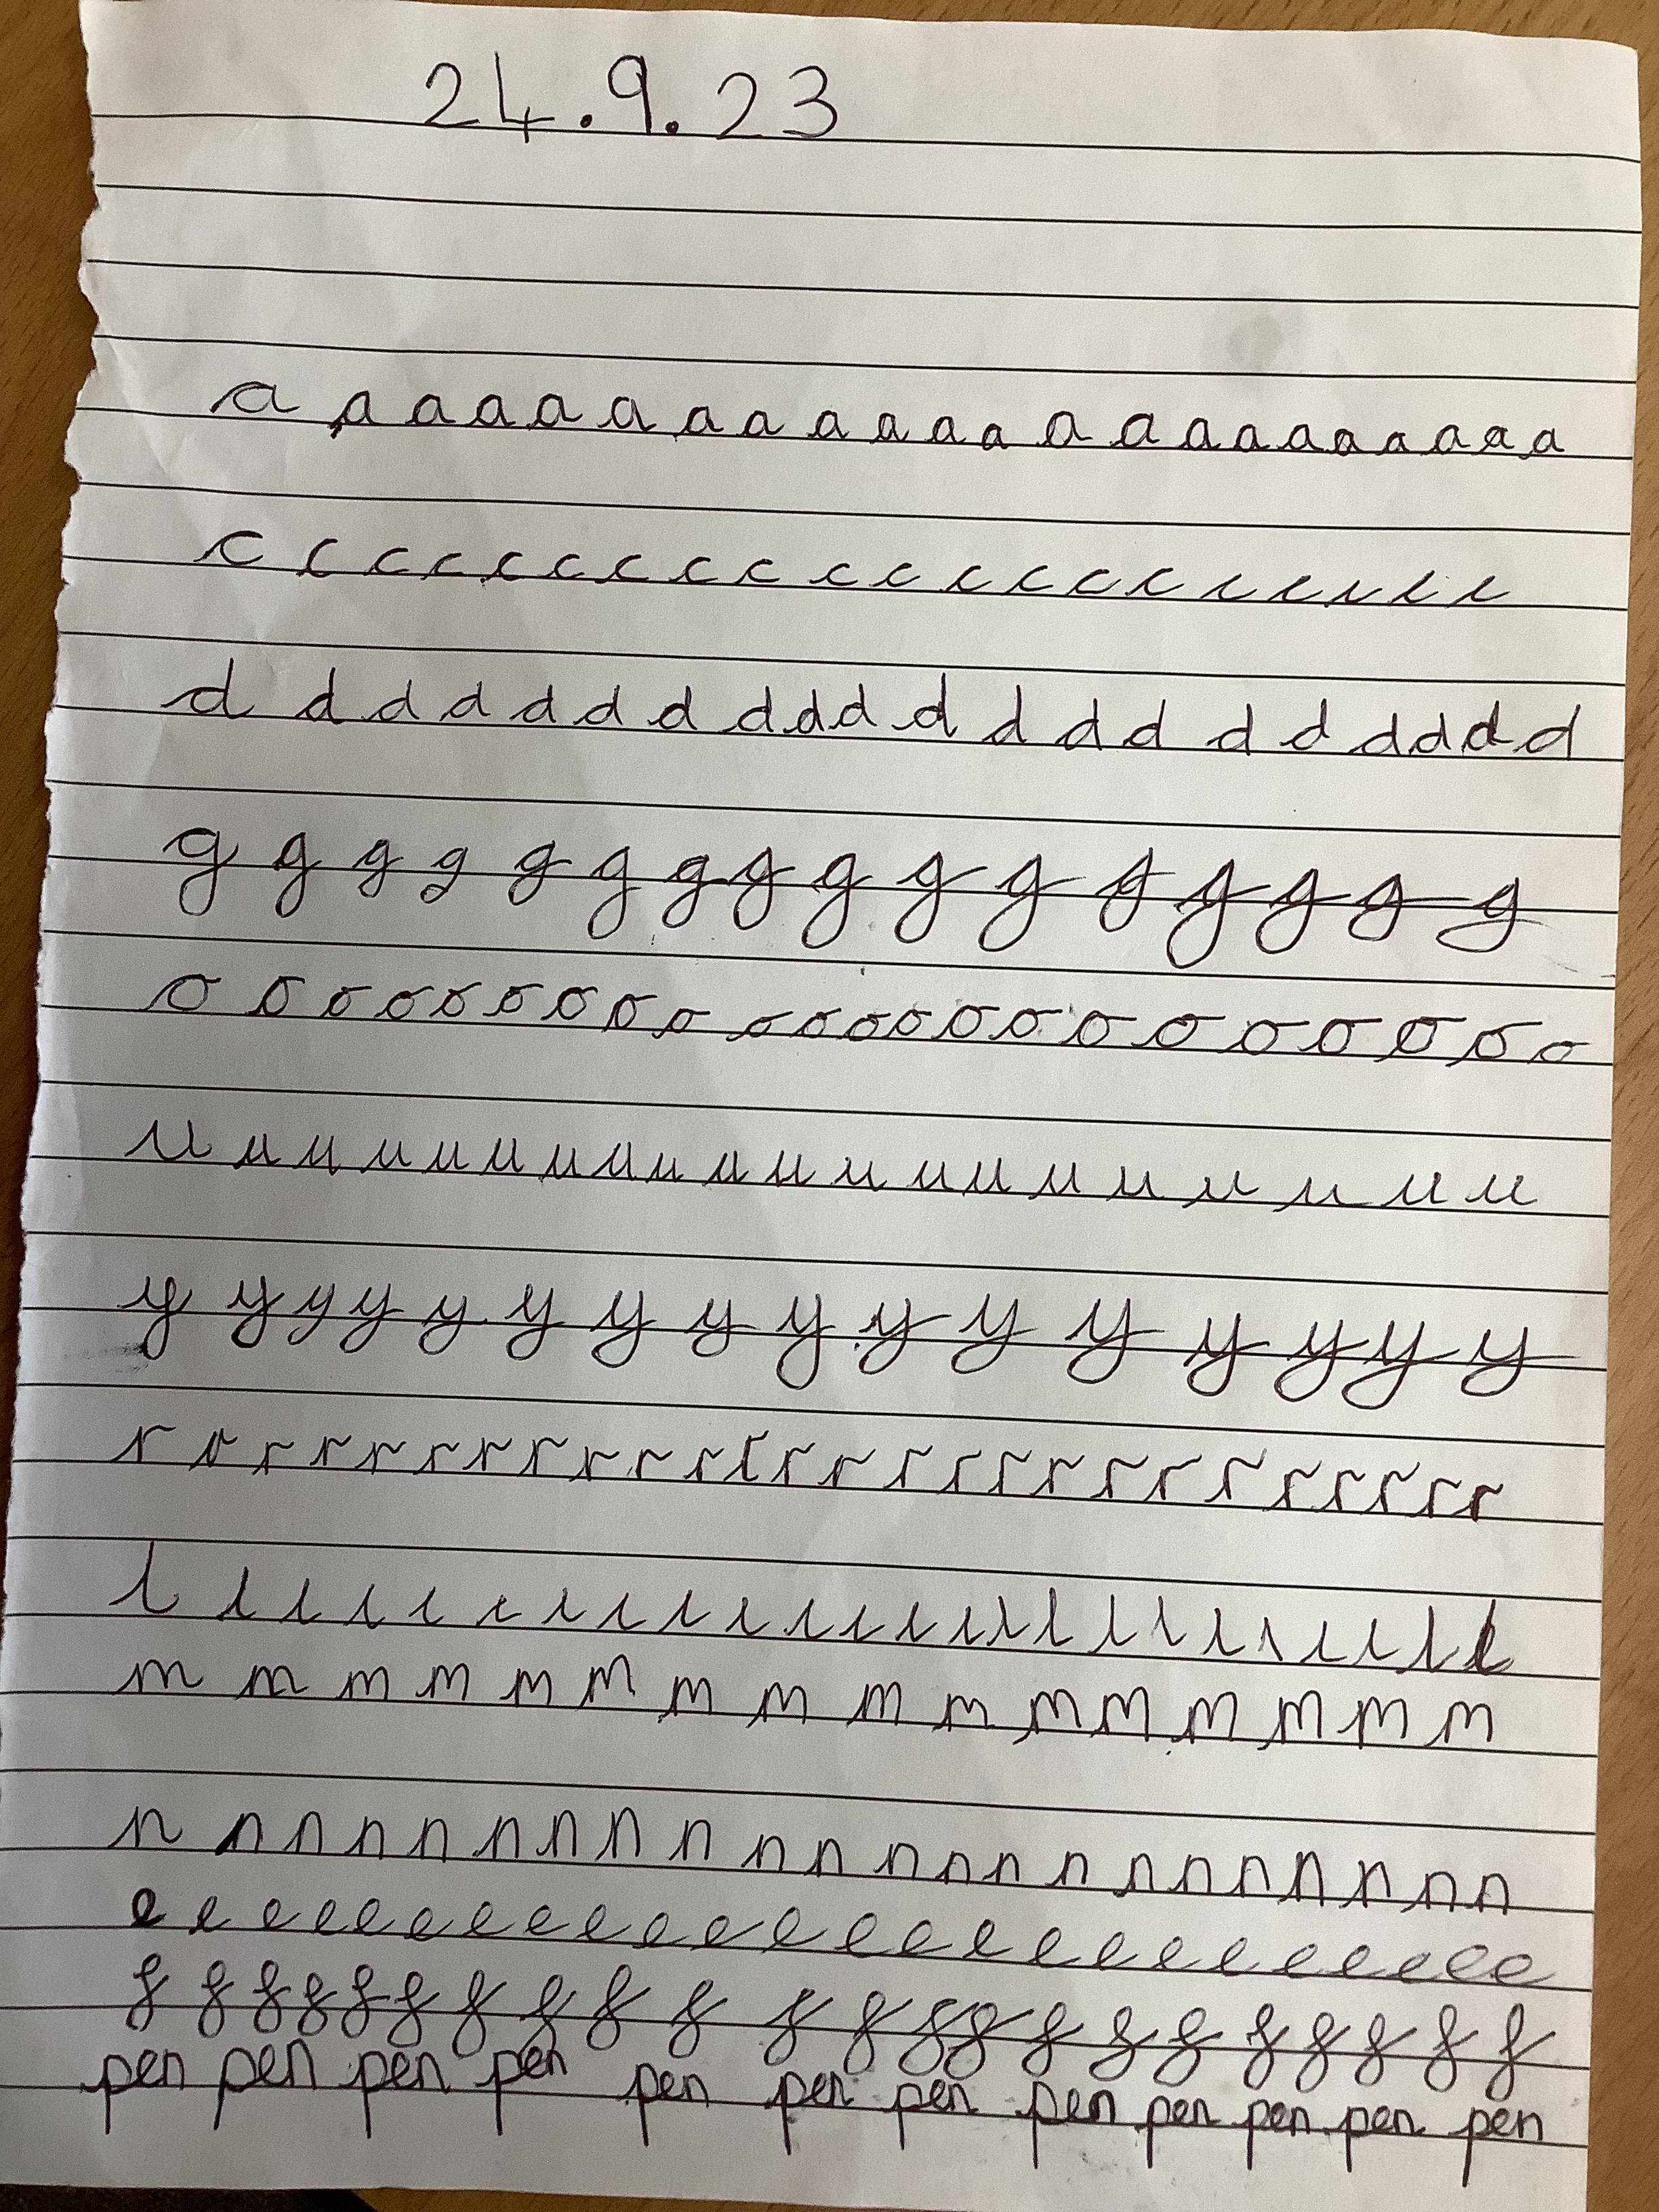 24.9.23
a a a a a a a a a a a a a a a a a a a a a a
c c c c c c c c c c c c c c c c c c c c
d d d d d d d d d d d d d d d d d d d d
g g g g g g g g g g g g g g g g
o o o o o o o o o o o o o o o o o o o o o o
u u u u u u u u u u u u u u u u u u u u
y y y y y y y y y y y y y y y y
r r r r r r r r r r r r r r r r r r r r r r r r r
l l l l l l l l l l l l l l l l l l l l l l l l
m m m m m m m m m m m m m m m m
n n n n n n n n n n n n n n n n n n n n n
e e e e e e e e e e e e e e e e e e e e e e e
f f f f f f f f f f f f f f f f f f f f f f
pen pen pen pen pen pen pen pen pen pen pen pen